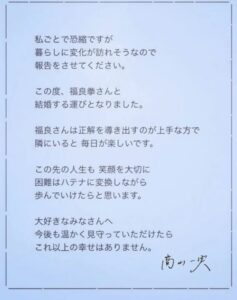 私ごとで恐縮ですが
暮らしに変化が訪れそうなので
報告をさせてください。
この度、福良拳さんと
結婚する運びとなりました。
福良さんは正解を導き出すのが上手な方で
隣にいると 毎日が楽しいです。
この先の人生も 笑顔を大切に
困難はハテナに変換しながら
歩んでいけたらと思います。
大好きなみなさんへ
今後も温かく見守っていただけたら
これ以上の幸せはありません。
高山一実